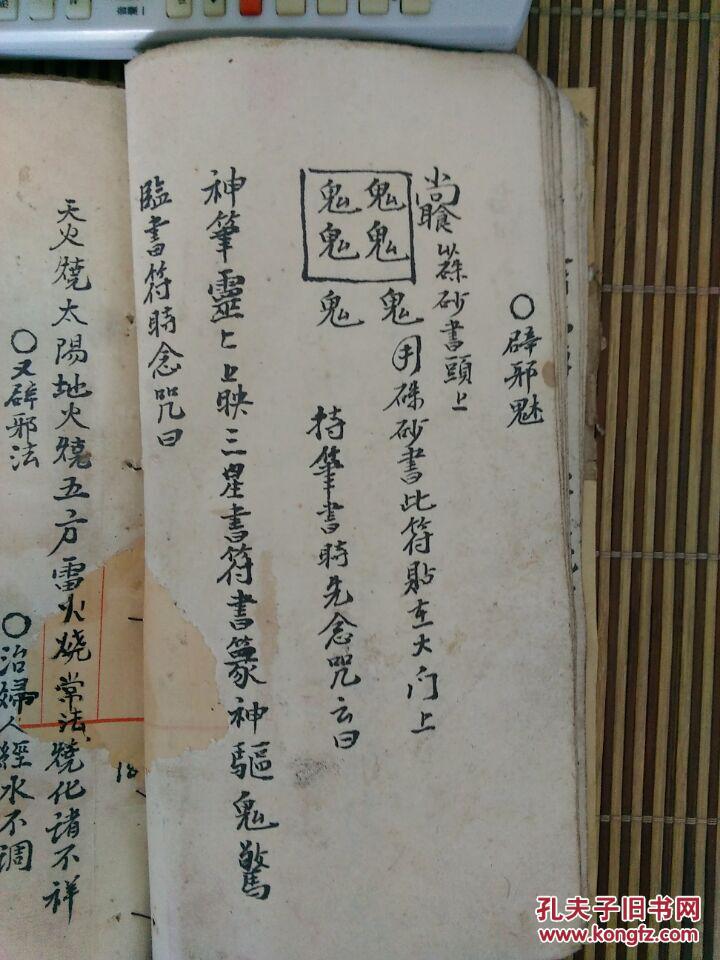 ○辟邪魅
尚㖼以硃砂書頭上
鬼鬼鬼
鬼鬼鬼
用硃砂書此符貼在大门上
持筆書時先念咒云曰
神筆靈〻上映三星書符書篆神驅鬼驚
臨書符時念咒曰
天火燒太陽地火燒五方雷火燒常法燒化諸不祥
○又辟邪法
○治婦人經水不调
18
孔夫子旧书网
www.kongfz.com